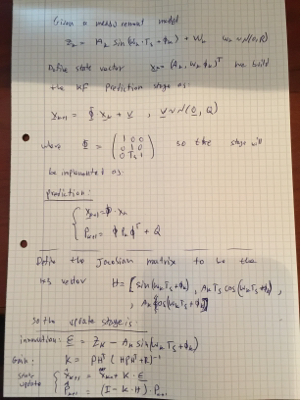 Given a measurement model
Zₖ = Aₖ sin(ωₖ·Tₛ + ϕₖ) + Wₖ  wₖ ~ N(0,R)
Define state vector xₖ = (Aₖ, ωₖ ϕₖ)ᵀ we build
the KF prediction stage as:
xₖ₊₁ = Φ xₖ + v , v ~ N(0, Q)
where Φ = (1 0 0
0 1 0
0 Tₛ 1) so the stage will
be implemented as:
prediction:
{ xₖ₊₁ = Φ · xₖ
Pₖ₊₁ = Φ Pₖ Φᵀ + Q
Define the Jacobian matrix to be the
vector H = [sin(ωₖTₛ+ϕₖ), AₖTₛ cos(ωₖTₛ+ϕₖ),
, Aₖ cos(ωₖTₛ+ϕₖ)]
So the update stage is:
innovation: E = Zₖ - Aₖ sin(ωₖTₛ+ϕₖ)
Gain: K = PHᵀ (HPHᵀ+R)⁻¹
state update { x̂ₖ₊₁ = xₖ₊₁ + K · E
P̂ₖ₊₁ = (I - K·H) · Pₖ₊₁